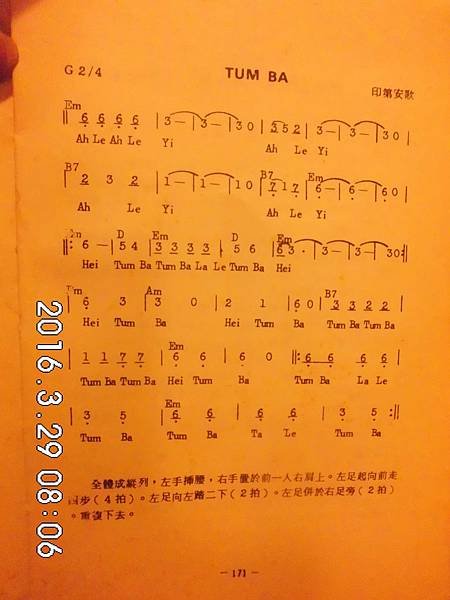 TUM BA
G 2/4
印第安歌
Em
‖ 6 6 6 6 | 3 — | 3 — | 3 0 | 3 5 2 | 3 — | 3 — | 3 0 |
Ah Le Ah Le Yi Ah Le Yi
B7 B7 Em
2 3 2 | 1 — | 1 — | 1 0 | 7 1 7 | 6 — | 6 — | 6 0 |
Ah Le Yi Ah Le Yi
D Em D Em
‖: 6 — | 5 4 | 3 3 3 3 | 5 6 | 6 3 . | 3 — | 3 — | 3 0 :‖
Hei Tum Ba Tum Ba La Le Tum Ba Hei
Am B7
| 6 3 | 3 0 | 2 1 | 6 0 | 3 3 2 2 |
Hei Tum Ba Hei Tum Ba Tum Ba Tum Ba
Em
| 1 1 7 7 | 6 6 | 6 0 ‖: 6 6 | 6 6 |
Tum Ba Tum Ba Hei Tum Ba Tum Ba La Le
Em
| 3 5 | 6 6 | 6 6 | 3 5 :‖
Tum Ba Tum Ba Ta Le Tum Ba
全體成縱列，左手挿腰，右手置於前一人右肩上。左足起向前走
四步（4 拍）。左足向左踏二下（2 拍）。左足併於右足旁（2 拍）
。重複下去。
－ 171 －
2016.3.29 08:06